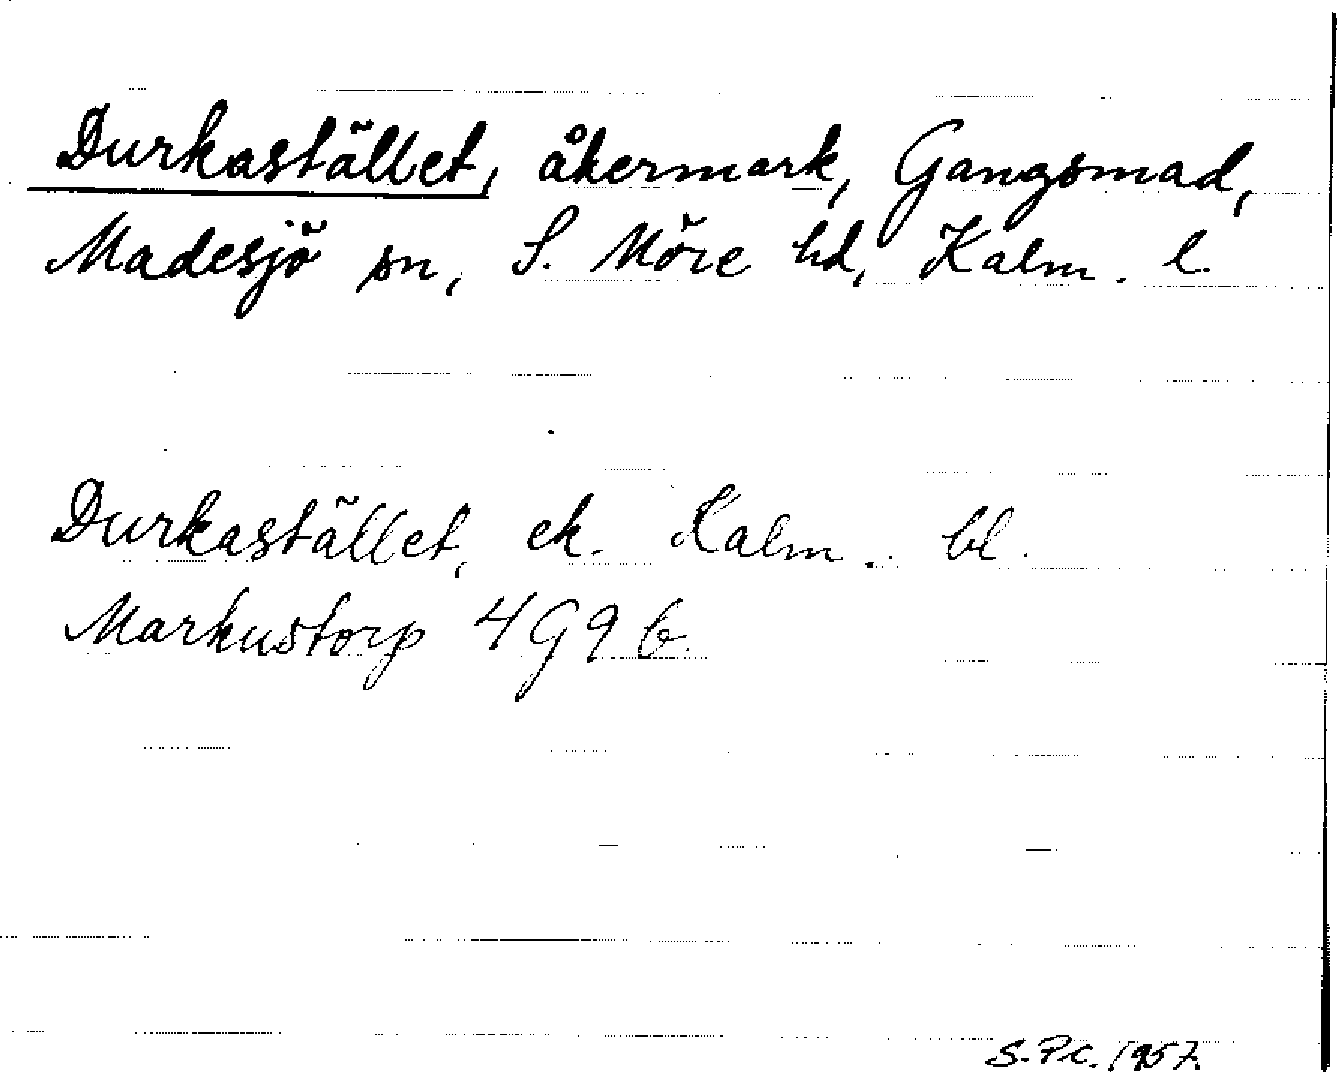 Durkastället, åkermark, Gangsmad,
Madesjö sn, S. Möre hd, Kalm. l.
Durkastället, ek. Kalm. bl.
Markustorp 4G9b.
S.Pc. 1957.